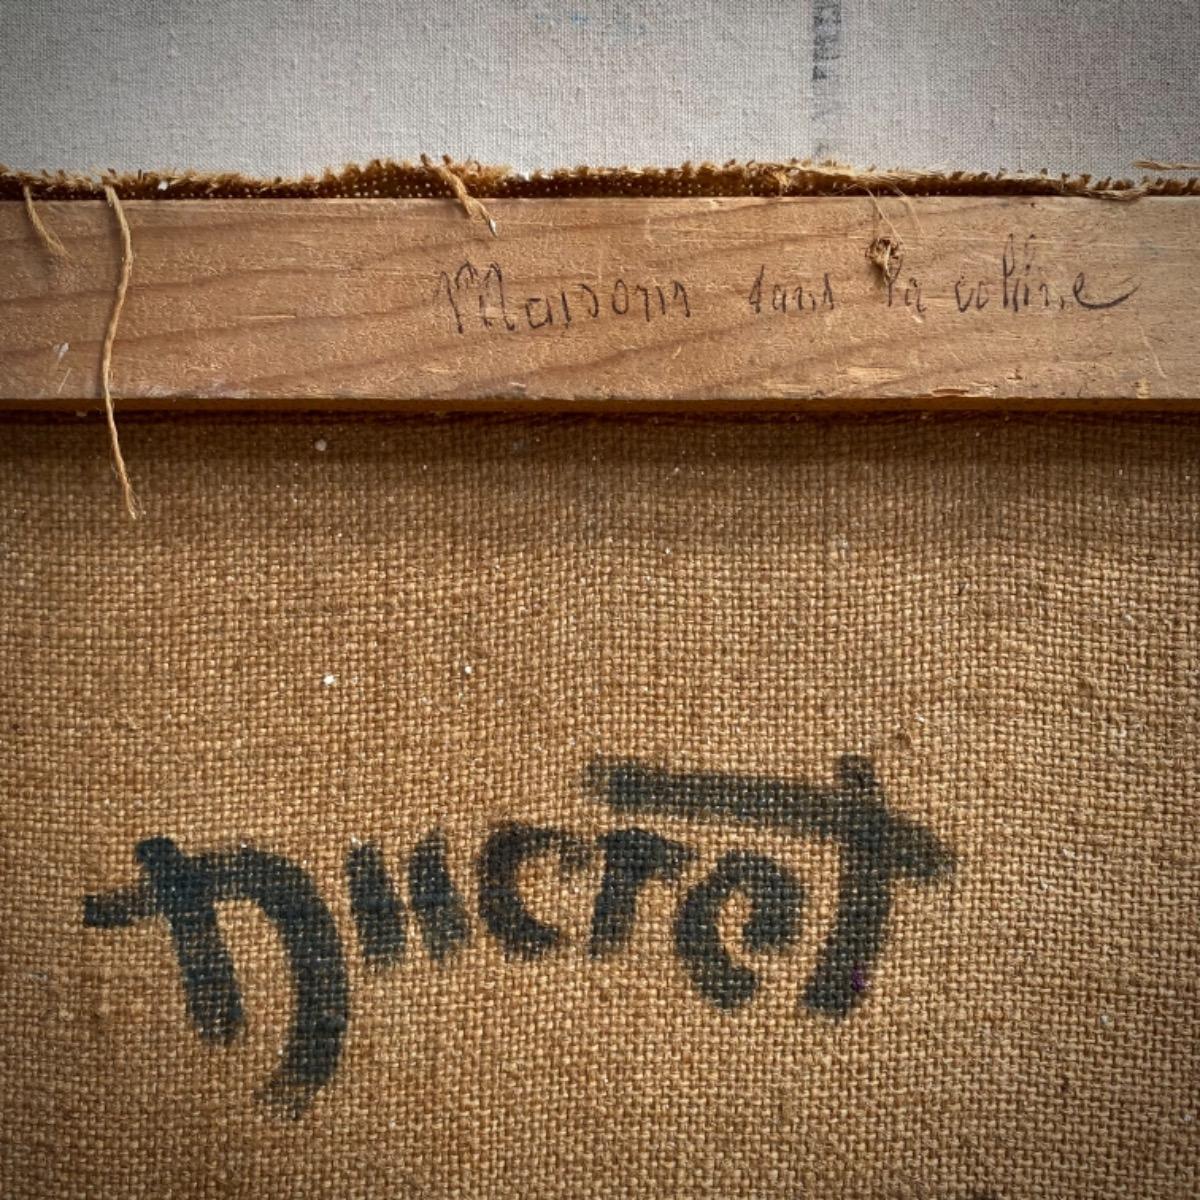 Maison dans la colline
Ducret